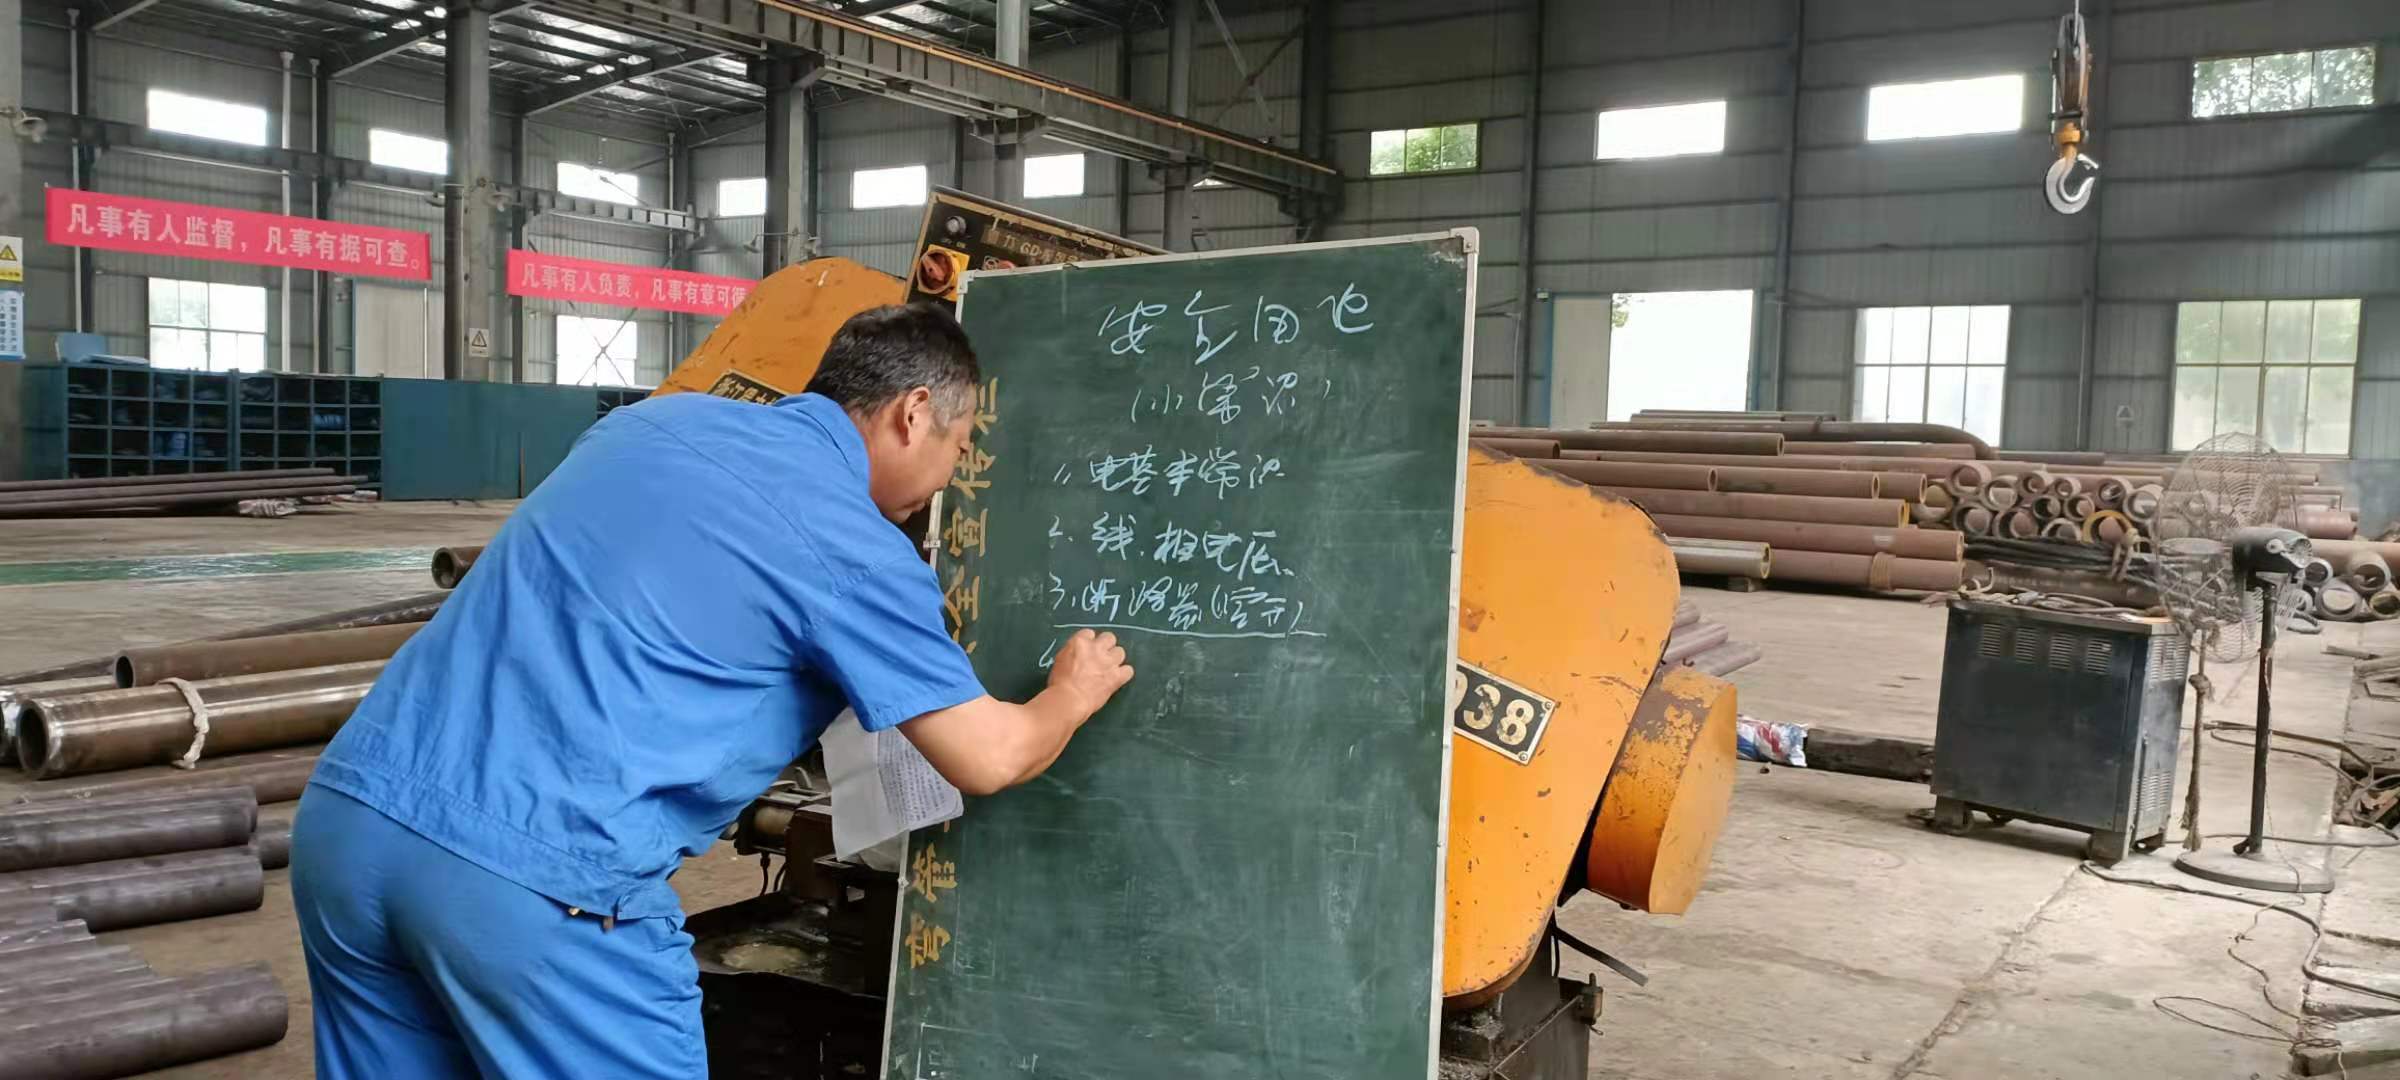 凡事有人监督，凡事有据可查。
凡事有人负责，凡事有章可循
安全用电
(小常识)
1、电基本常识
2、线、相电压、
3、断路器(空开)
4
全宣传栏
弯管
938